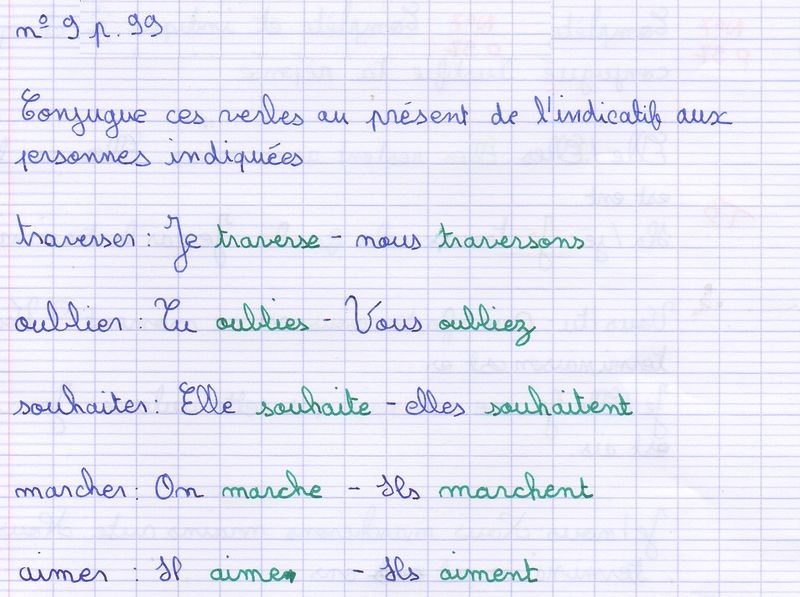 n° 9 p. 99
Conjugue ces verbes au présent de l'indicatif aux
personnes indiquées
traverser : Je traverse - nous traversons
oublier : Tu oublies - Vous oubliez
souhaiter : Elle souhaite - elles souhaitent
marcher : On marche - Ils marchent
aimer : Il aime - Ils aiment